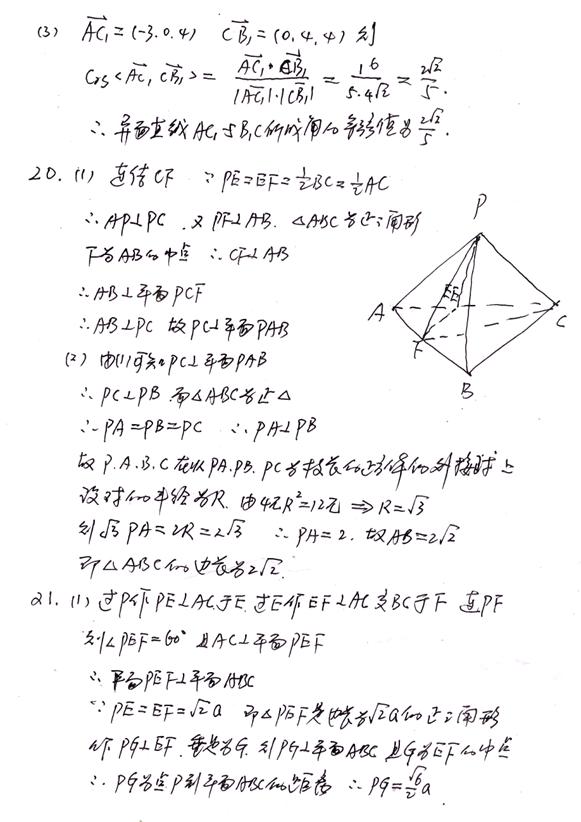 (3) AC₁→=(-3.0.4) CB₁→=(0,4,4) 则
Cos<AC₁→,CB₁→> = AC₁→·CB₁→/|AC₁→|·|CB₁→| = 16/5·4√2 = 2√2/5.
∴ 异面直线AC₁与B₁C所成角的余弦值为2√2/5.
20. (1) 连结CF ∵ PE=EF=½BC=½AC
∴ AP⊥PC 又PF⊥AB. △ABC为正三角形
F为AB的中点 ∴ CF⊥AB
∴ AB⊥平面PCF
∴ AB⊥PC 故PC⊥平面PAB
(2) 由(1)可知PC⊥平面PAB
∴ PC⊥PB 而△ABC为正△
∴ PA=PB=PC ∴ PA⊥PB
故P.A.B.C在以PA.PB.PC为棱长的正方体的外接球上
设球的半径为R. 由4πR²=12π ⇒ R=√3
则√3PA=2R=2√3 ∴ PA=2. 故AB=2√2
即△ABC的边长为2√2.
21. (1) 过P作PE⊥AC于E.过E作EF⊥AC交BC于F 连PF
则∠PEF=60° 且AC⊥平面PEF
∴ 平面PEF⊥平面ABC
∵ PE=EF=√2a 即△PEF是边长为√2a的正三角形
作PG⊥EF.垂足为G.则PG⊥平面ABC 且G为EF的中点
∴ PG为点P到平面ABC的距离 ∴ PG=√6/2a
P
E
A
C
F
B